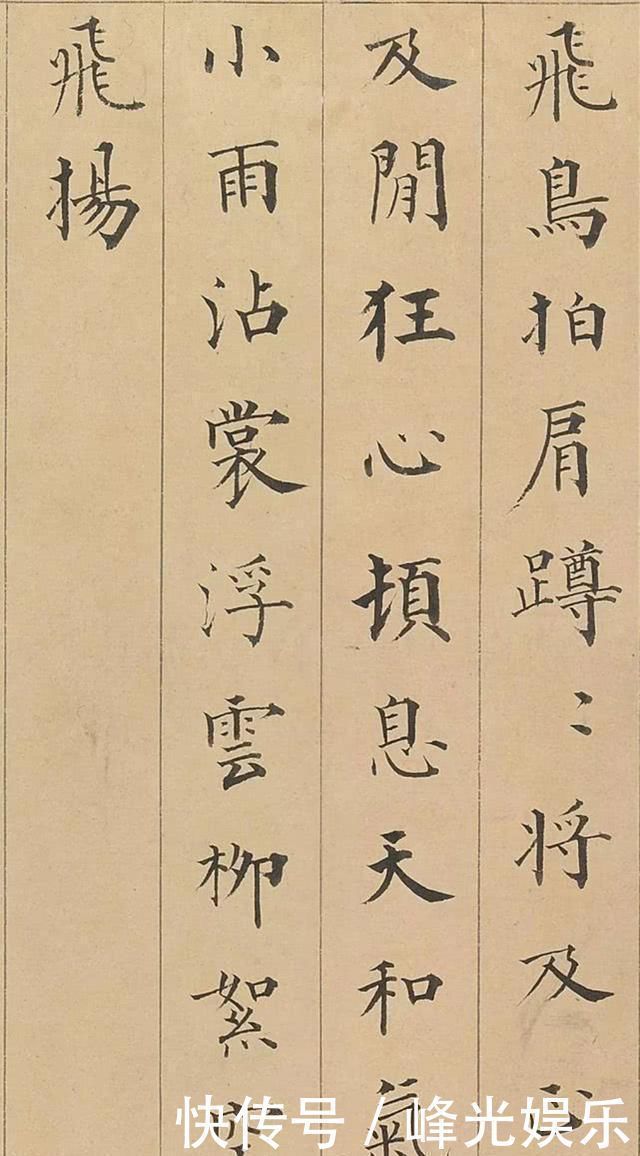 飛鳥拍肩蹲〻将及
及閒狂心頓息天和氣
小雨沾裳浮雲柳絮
飛揚
快传号/峰光娱乐